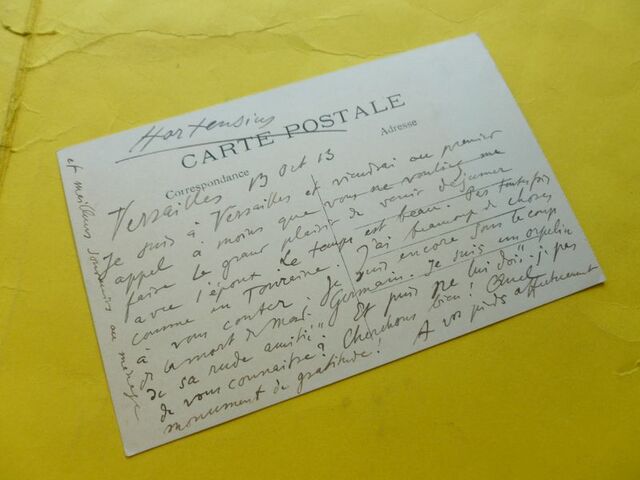 Hortensius
CARTE POSTALE
Correspondance
Adresse
Versailles 13 Oct 13
Je suis à Versailles et viendrai au premier
appel à moins que vous ne vouliez me
faire le grand plaisir de venir déjeuner
avec l'époux. Le temps est beau. Pas toutefois
comme en Touraine. J'ai beaucoup de choses
à vous conter. Je suis encore sous le coup
de la mort de Mad. Germain. Je suis un orphelin
de sa rude amitié. Et puis ne lui dois-je pas
de vous connaitre? Cherchons bien! Quel
monument de gratitude! A vos pieds affectueusement
et meilleurs souvenirs au ménage